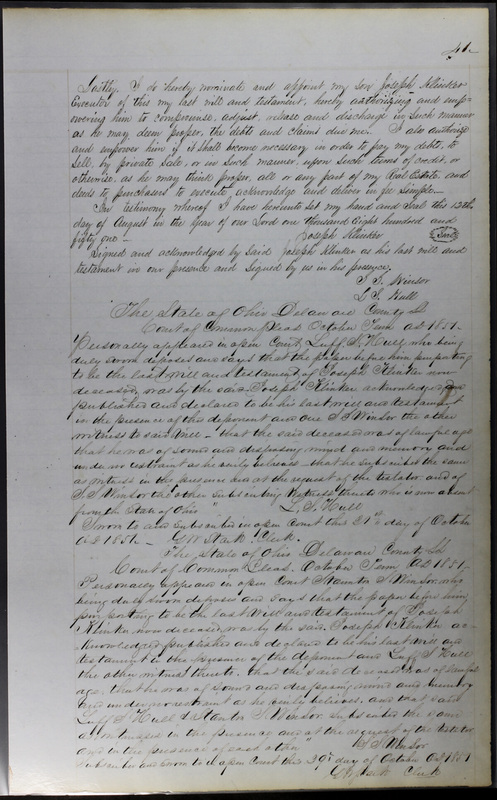 41
Lastly. I do hereby nominate and appoint my son Joseph Klinker
Executor of this my last will and testament, hereby authorising and emp-
owering him to compromise, adjust, release and discharge in such manner
as he may deem proper, the debts and claims due me. I also authorise
and empower him if it shall become necessary in order to pay my debts, to
sell, by private sale, or in such manner, upon such terms of credit, or
otherwise, as he may think proper, all or any part of my Real Estate and
deeds to purchasers to execute acknowledge and deliver in fee simple.
In testimony whereof I have hereunto set my hand and seal this 12th
day of August in the year of our Lord one thousand Eight hundred and
fifty one – Joseph Klinker (Seal)
Signed and acknowledged by said Joseph Klinker as his last will and
testament in our presence and signed by us in his presence.
S. S. Winsor
L. S. Hull
The State of Ohio Delaware County Ss
Court of Common Pleas October Term AD 1851–
Personally appeared in open Court Luff S. Hull who being
duly sworn deposes and says that the paper before him purporting
to be the last will and testament of Joseph Klinker now
deceased, was by the said Joseph Klinker acknowledged
published and declared to be his last will and testament
in the presence of this deponent and One S S Winsor the other
witness to said will – that the said deceased was of lawful age
that he was of sound and disposing mind and memory and
under no restraint as he verily believes – that he subscribed the same
as witness in the presence and at the request of the testator and of
S S Winsor the other subscribing witness thereto who is now absent
from the State of Ohio L. S. Hull
Sworn to and subscribed in open Court this 21st day of October
AD 1851 – GW Stark Clerk.
The State of Ohio Delaware County Ss
Court of Common Pleas. October Term AD 1851,
Personally appeared in open Court Staunton S Winsor who
being duly sworn deposes and says that the paper before him
purporting to be the last will and testament of Joseph
Klinker now deceased, was by the said Joseph Klinker ac-
knowledged published and declared to be his last will and
testament in the presence of the deponent and Luff S Hull
the other witness thereto. that the said deceased was of lawful
age, that he was of sound and disposing mind and memory
and under no restraint as he verily believes, and that said
Luff S Hull & Staunton S Winsor subscribed the same
as witnesses in the presence and at the request of the testator
and in the presence of each other S S Winsor
Subscribed and sworn to in open Court this 29th day of October AD 1851
GW Stark Clerk